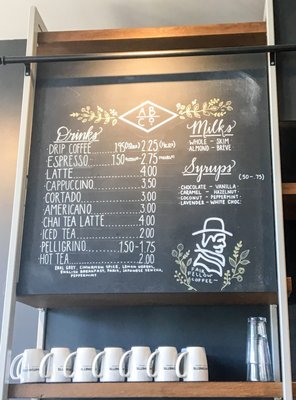 A B
C O
Drinks
DRIP COFFEE 1.95 2.25
ESPRESSO 1.50 2.75
LATTE 4.00
CAPPUCCINO 3.50
CORTADO 3.00
AMERICANO 2.00
CHAI TEA LATTE 4.00
ICED TEA 2.00
PELLIGRINO 1.50-1.75
HOT TEA 2.00
EARL GREY,
ENGLISH BREAKFAST, PARIS, JAPANESE SENCHA,
PEPPERMINT
Milks
WHOLE - SKIM
ALMOND - BREVE
Syrups
(.50-.75)
CHOCOLATE - VANILLA
CARAMEL - HAZELNUT
COCONUT - PEPPERMINT
LAVENDER - WHITE CHOC.
FELLOW
COFFEE